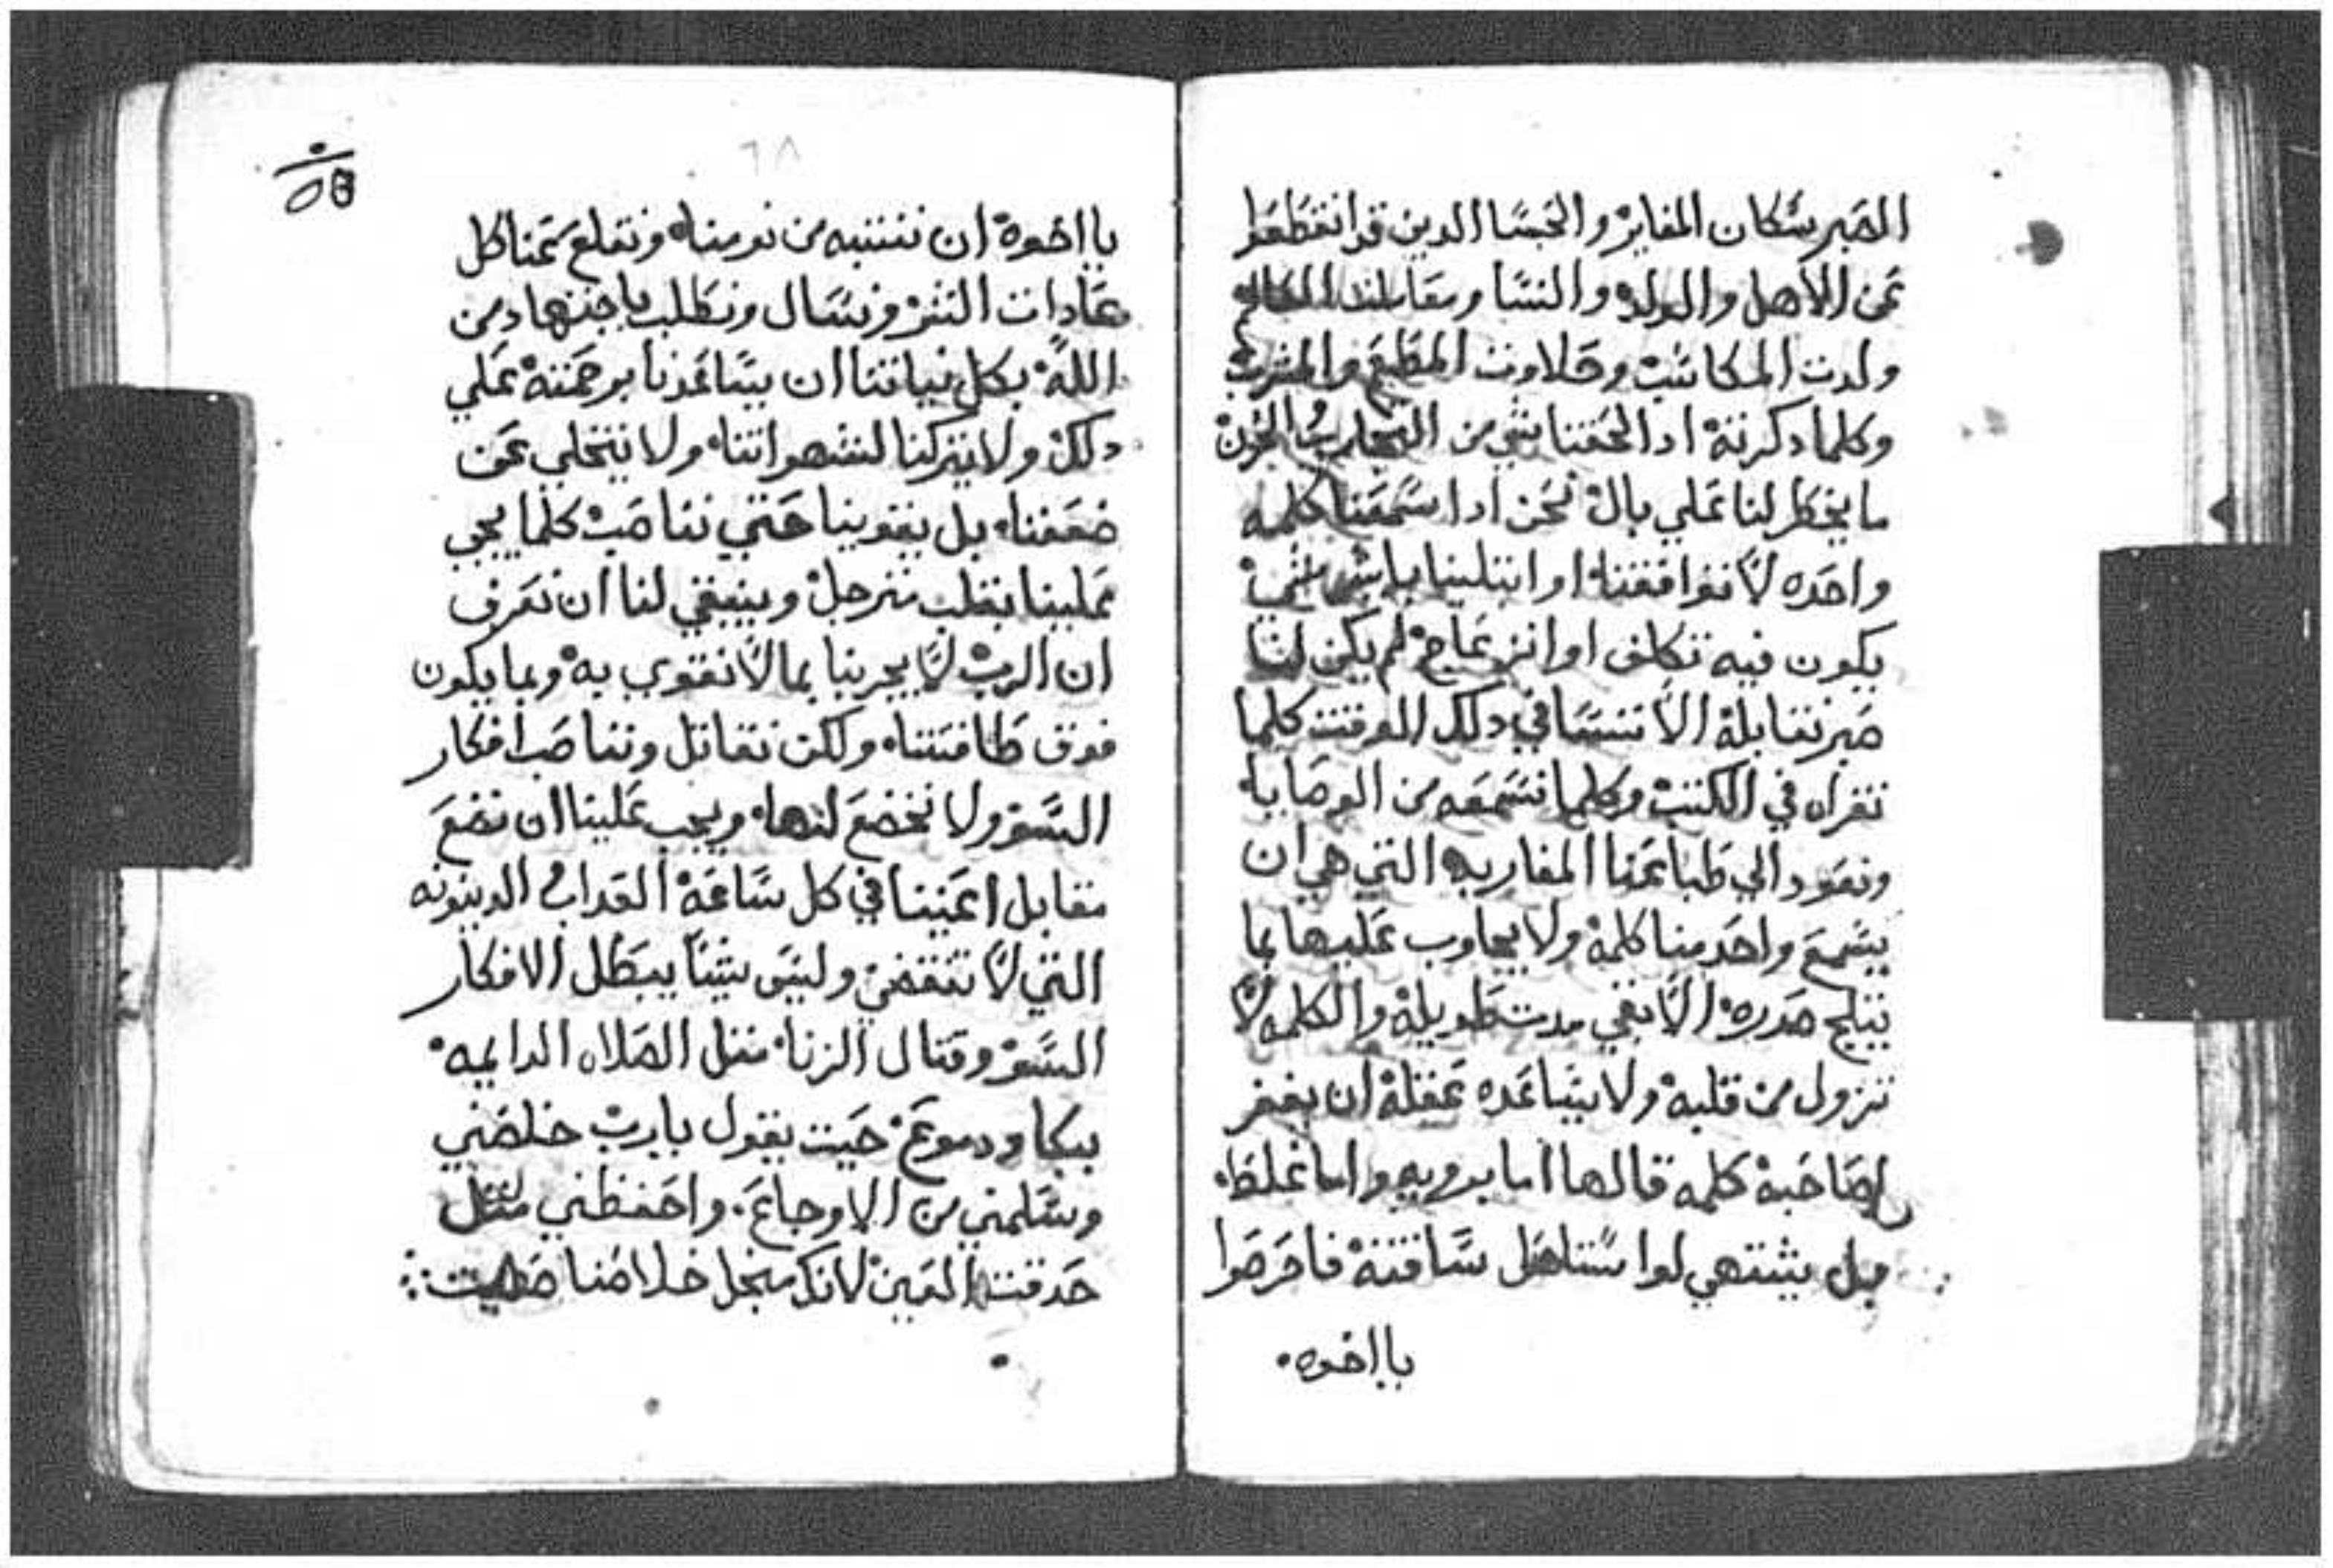 الصبر سكان المغاير والحبسا الدين قد انقطعوا
عن الأهل والولد والنسا ومقابلت
ولدت المكاسب وحلاوت المطعم والمشرب
وكلما دكرته ادا لحقنا شي من التجارب الحزن
ما يخطر لنا علي بال نحن ادا سمعنا كلمه
واحده لا توافقنا او ابتلينا
يكون فيه تكلف او انزعاج لم يكن لنا
صبر نقابله الا ننسا في دلك الوقت كلما
نقراه في الكتب وكلما نسمعه من الوصايا
ونعود الي طباعنا المغاربه التي هي ان
يسمع واحد منا كلمه ولا يجاوب عليها بما
يتلج صدره الا بقي مدت طويله والكلمه لا
تزول من قلبه ولا يساعده عقله ان يغفر
لصاحبه كلمه قالها اما برويه واما غلط
بل يشتهي لوا ستاهل ساقته فاحرصوا
يا اخوه
٦٨
يا اخوه ان ننتبه من نومنا ونقلع عنا كل
عادات الشر ونسال ونطلب باجتهاد من
الله بكل نياتنا ان يساعدنا برحمته علي
دلك ولا يتركنا لشهواتنا ولا يتخلي عن
ضعفنا بل يقوينا حتي نناصب كلما يجي
علينا بقلب مترجل وينبغي لنا ان نعرف
ان الرب لا يجربنا بما لا نقوي به وبما يكون
فوق طاقتنا ولكن نقاتل ونناصب افكار
السو ولا نخضع لها ويجب علينا ان نضع
مقابل اعيننا في كل ساعه العداب الدينونه
التي لا تنقضي وليس شيا يبطل الافكار
السو وقتال الزنا متل الصلاه الدايمه
ببكا ودموع حيت يقول يارب خلصني
وسلمني من الاوجاع واحفظني متل
حدقت العين لانك منجل خلاصنا